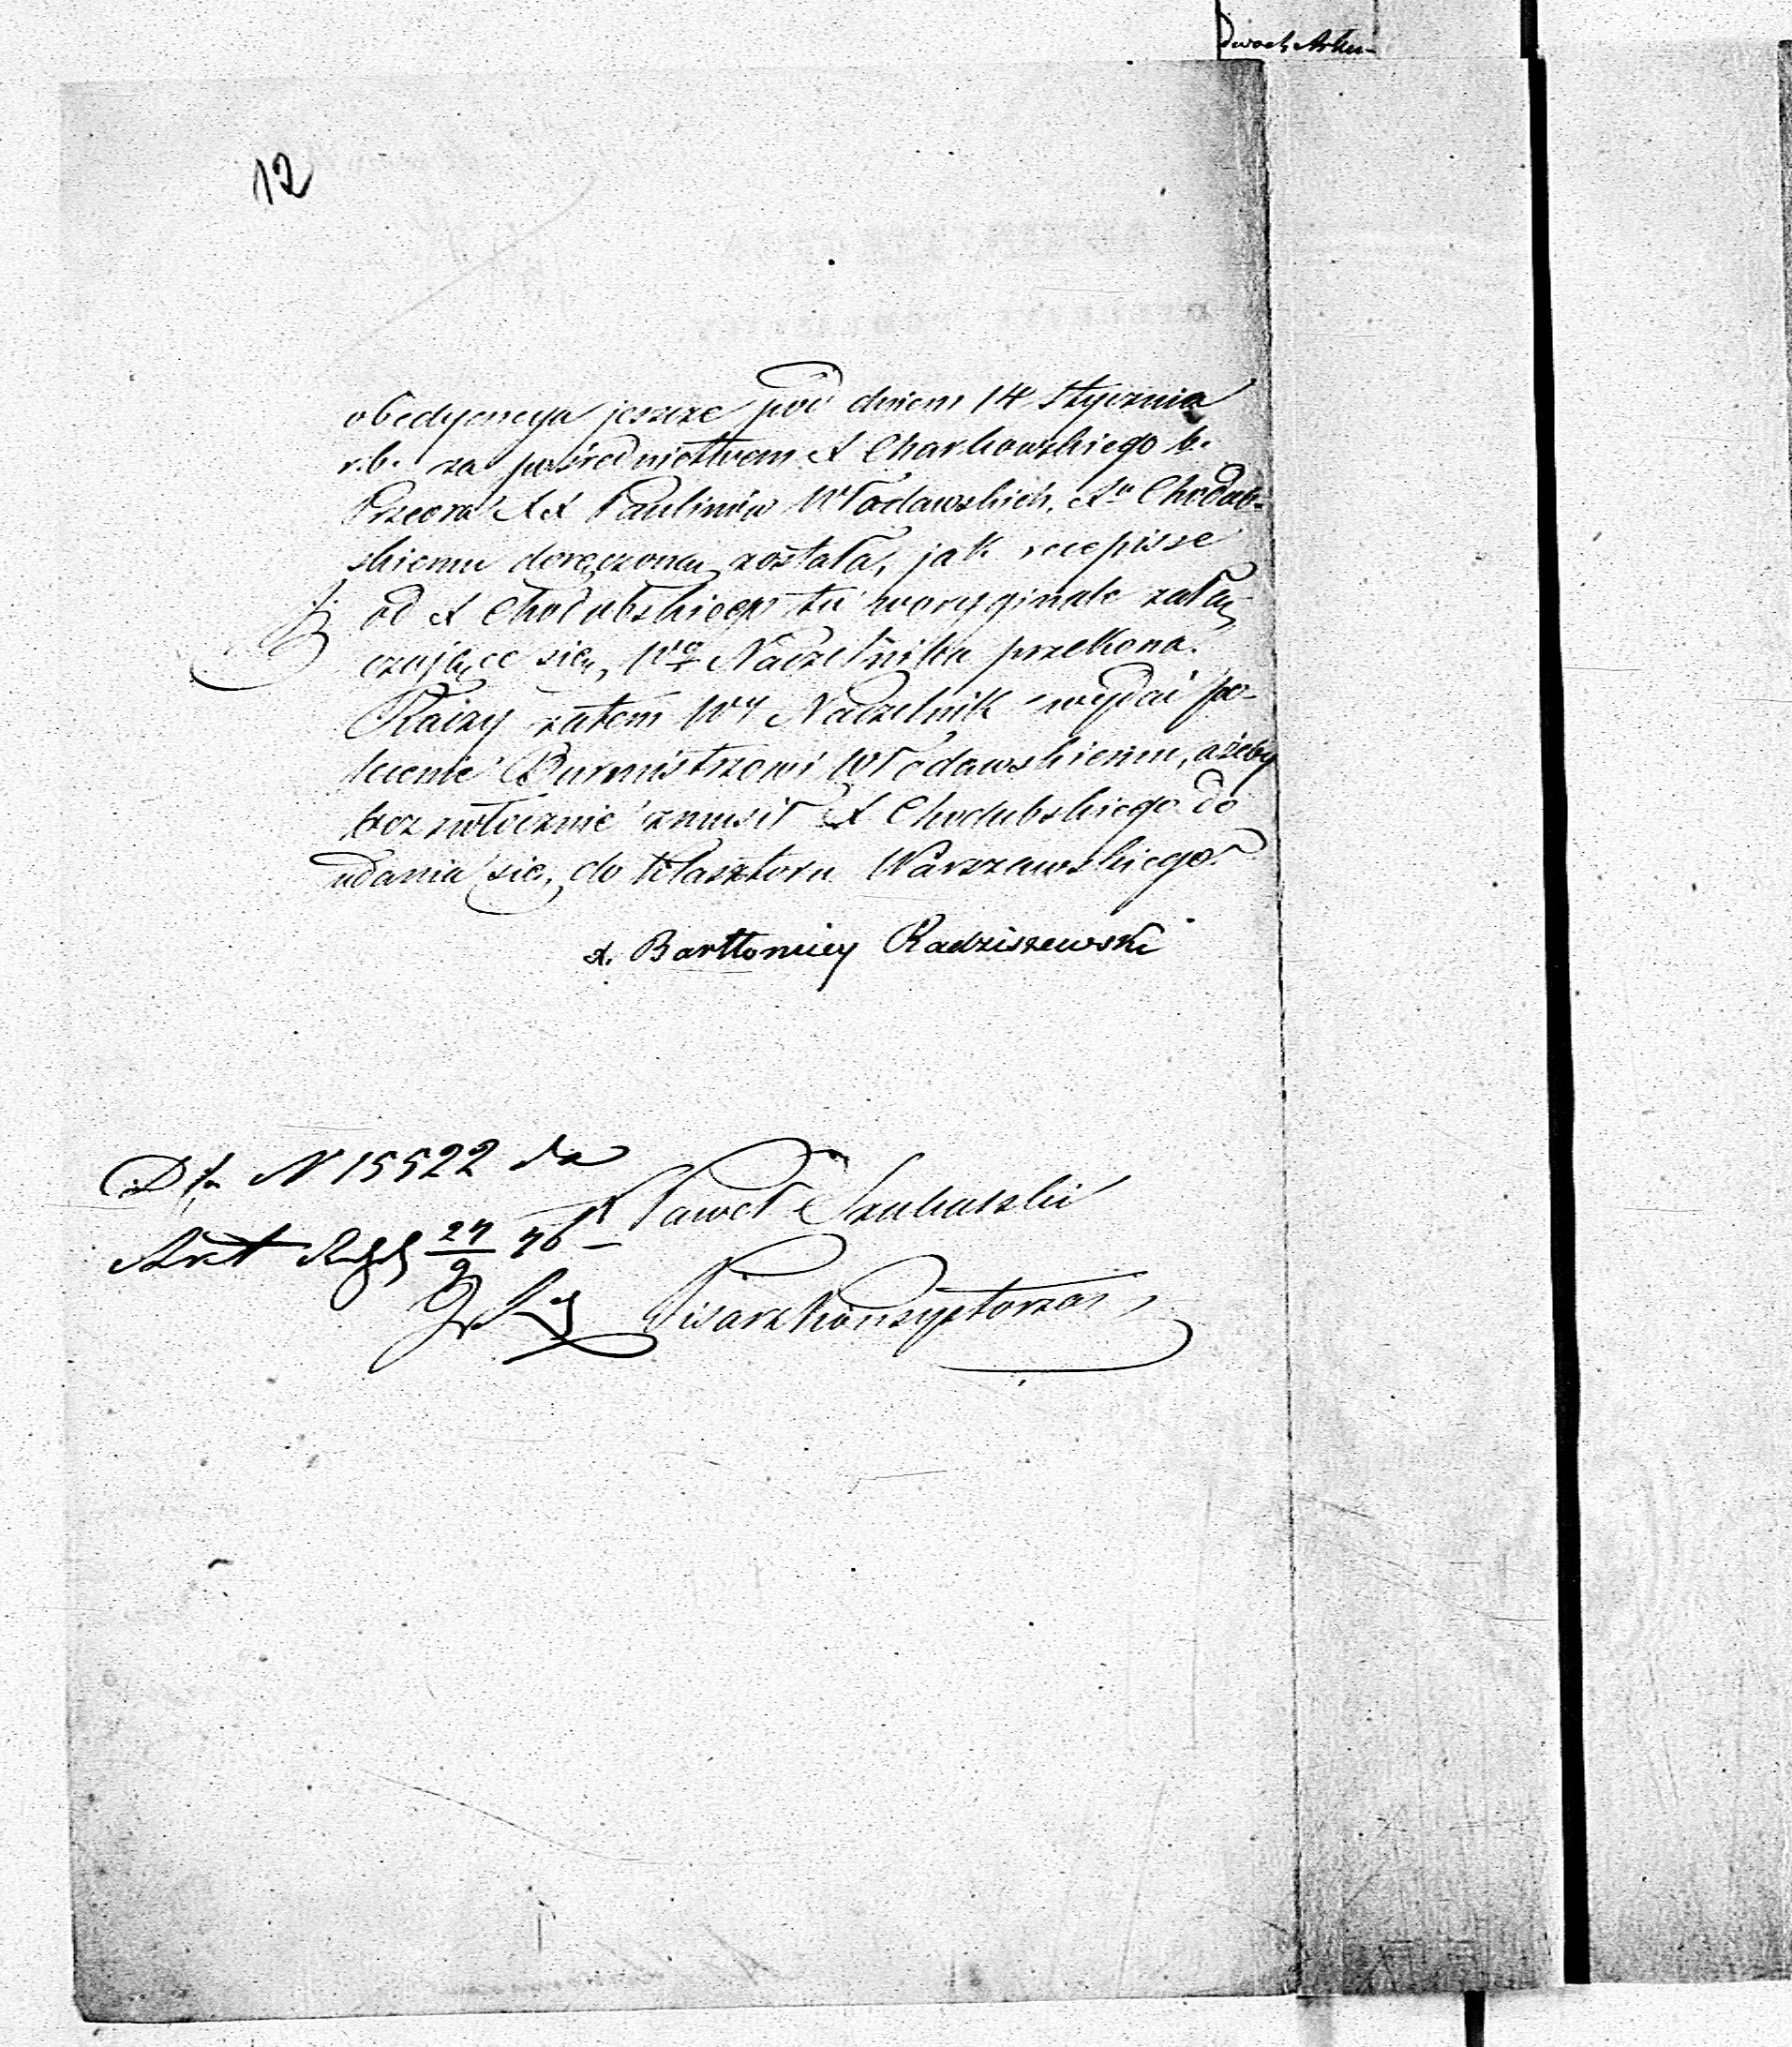 dwoch Arku-
12
obedyencya jeszcze pod dniem 14 Stycznia
r.b. za pośrednictwem X Charkowskiego b.
Przeora XX Paulinów Włodawskich, Xu Chodub-
skiemu doręczona została, jak recepisse
od X Chodubskiego tu w oryginale załą-
czające się, Wo Naczelnika przekona.
Raczy zatem Wy Naczelnik wydać po-
lecenie Burmistrzowi Włodawskiemu, ażeby
bezzwłocznie zmusił X Chodubskiego do
udania się do Klasztoru Warszawskiego.
X. Bartłomiey Radziszewski
N 15522 da
Paweł
Akt 27/9 46
Pisarz Konsystorza